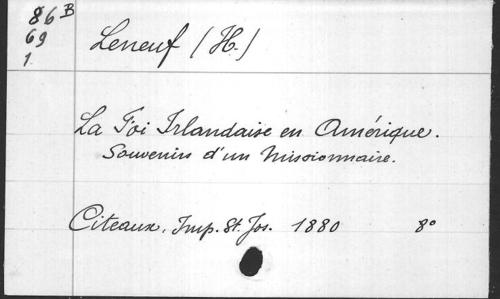 86 B
69
1.
Leneuf (H.)
La Foi Irlandaise en Amérique.
Souvenirs d'un Missionnaire.
Citeaux, Imp. St. Jos. 1880 8°